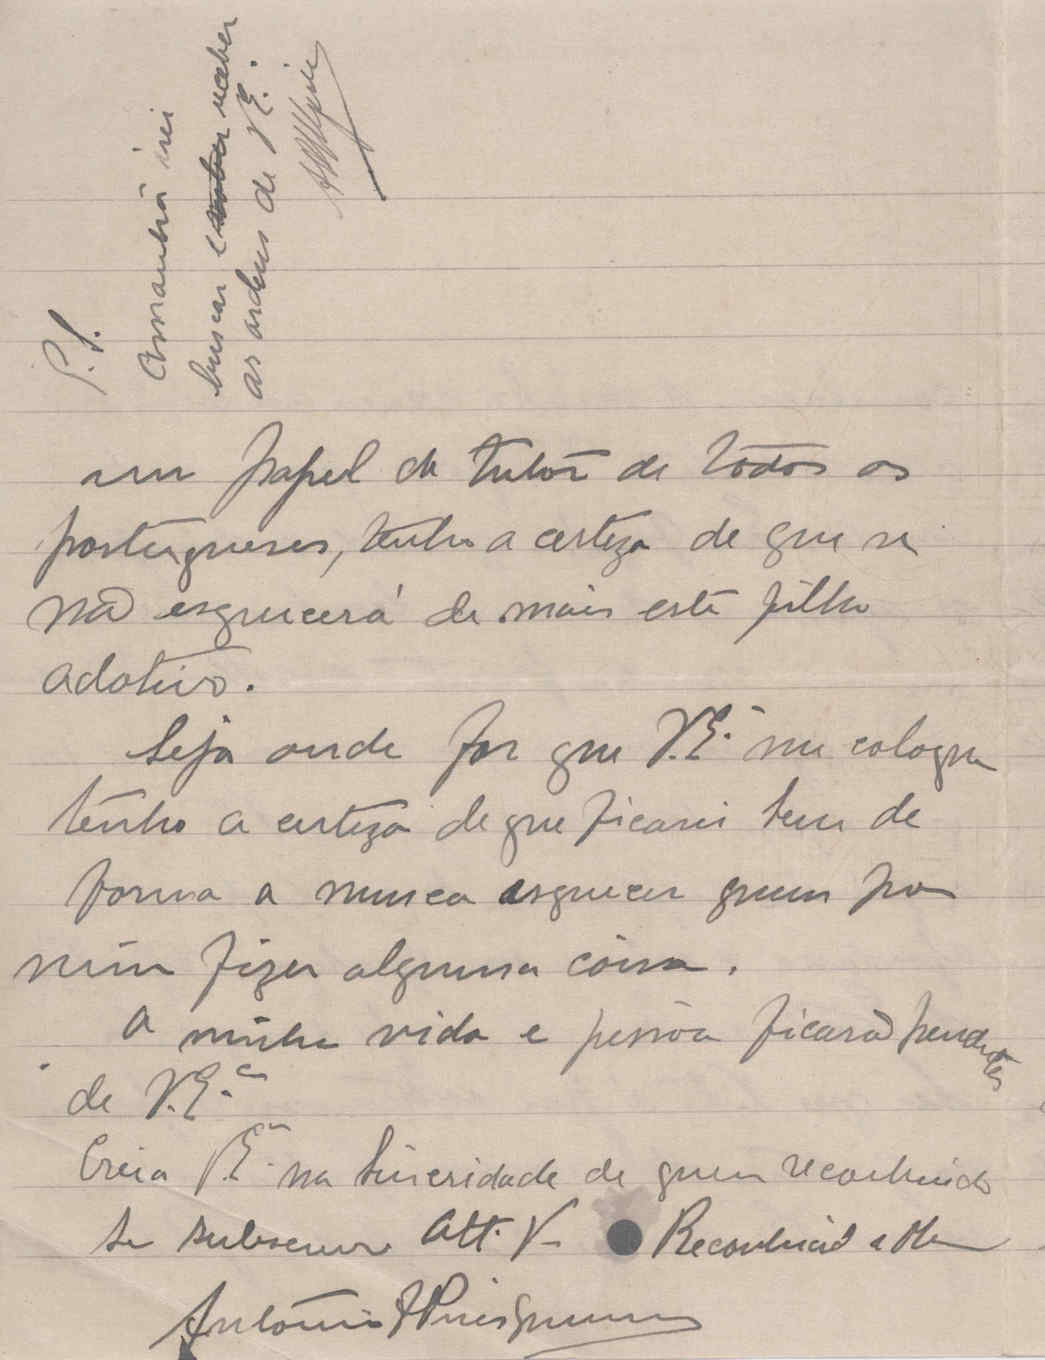 P.S.
Amanhã irei
buscar e receber
as ordens de V.E.
um papel de tutor de todos os
portugueses, tenho a certeza de que se
não esquecerá de mais este filho
adotivo.
Seja onde for que V.E.ª me coloque
tenho a certeza de que ficarei bem de
forma a nunca esquecer quem por
mim fizer alguma coisa.
A minha vida e pessoa ficarão pendentes
de V.E.ª
Creia V.E.ª na sinceridade de quem reconhecido
se subscreve Att. V. Reconhecido e
António